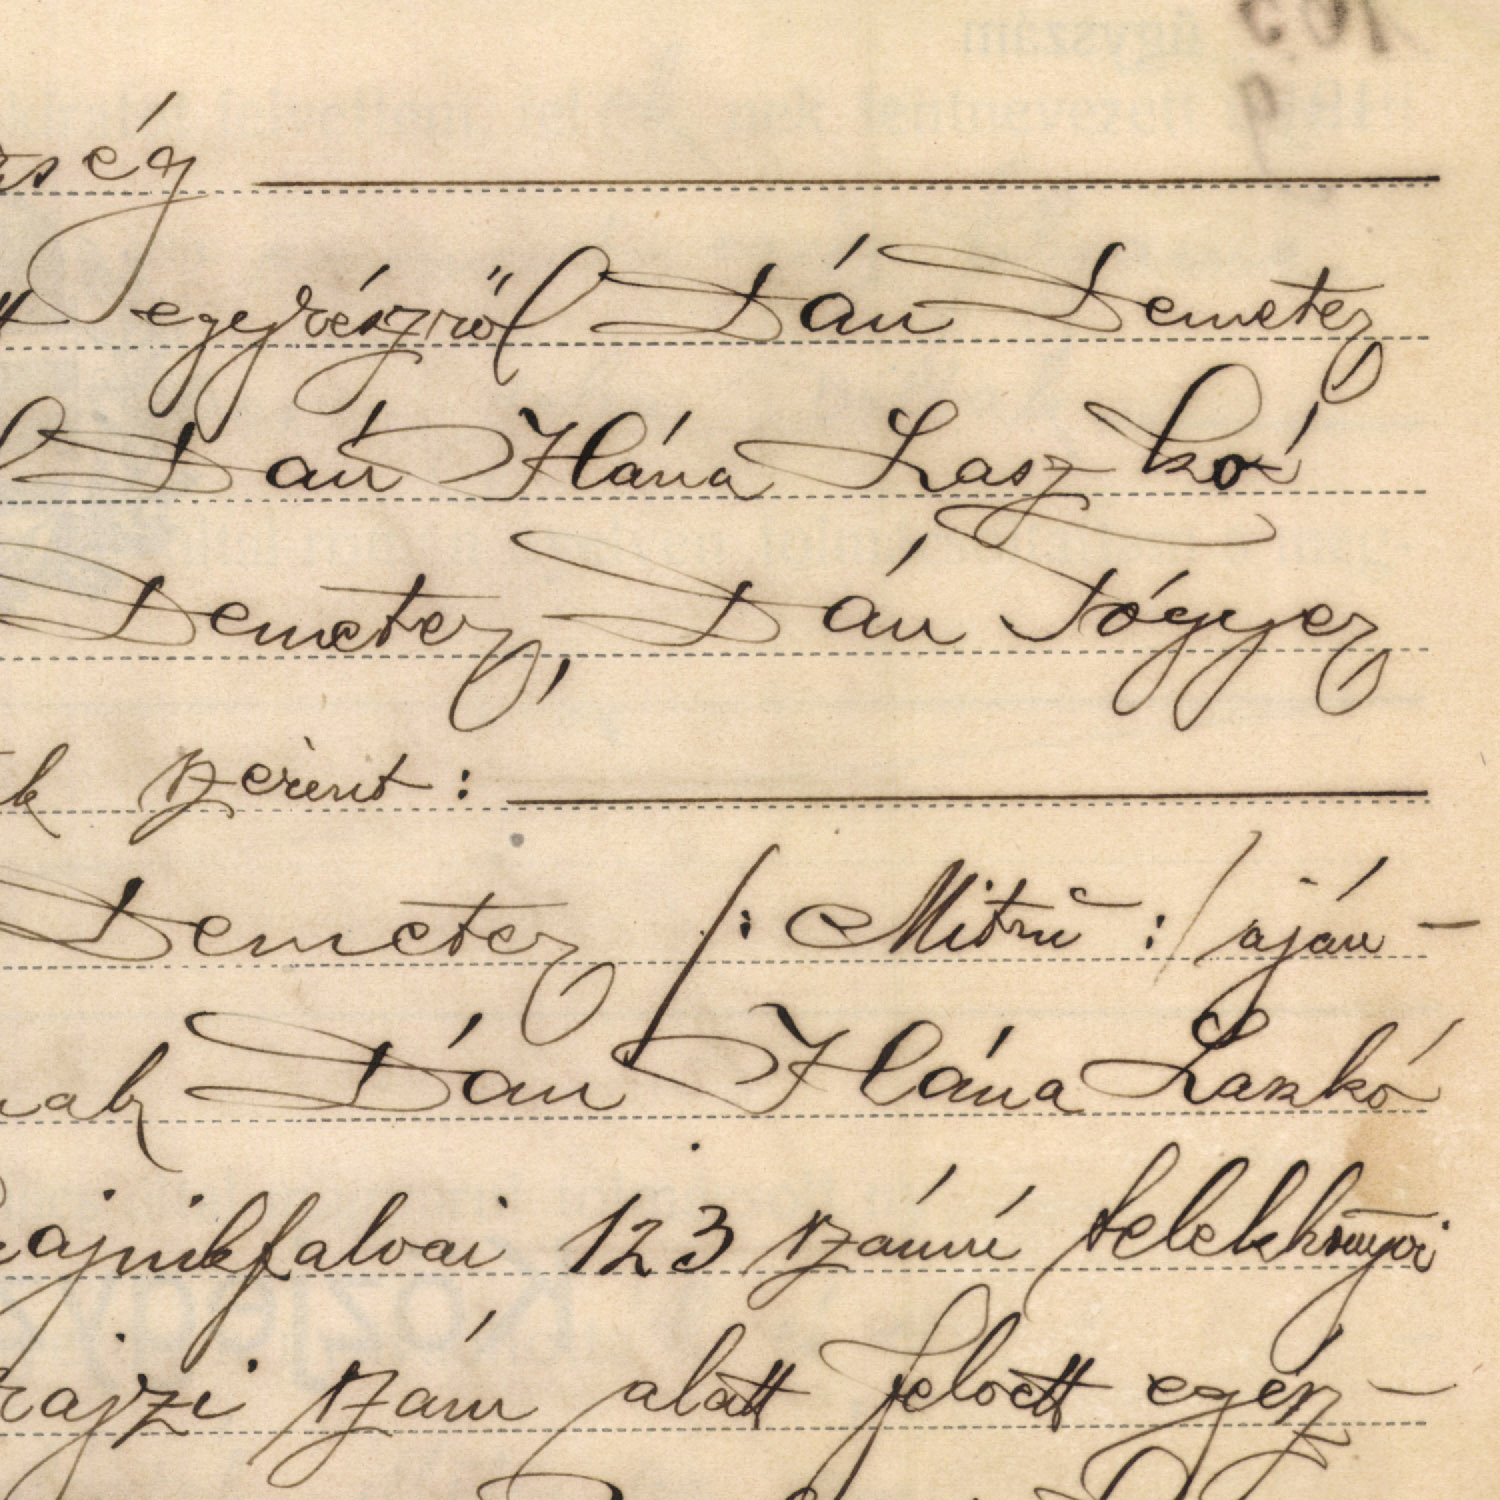 ség
egyrészről Dán Demeter
Dán Hána Laszkó
Demeter, Dán Tógyer
k szerint:
Demeter /: Mitru :/ aján-
nak Dán Hána Laszkó
ajnikfalvai 123 számú telekkönyvi
rajzi szám alatt felvett egész-